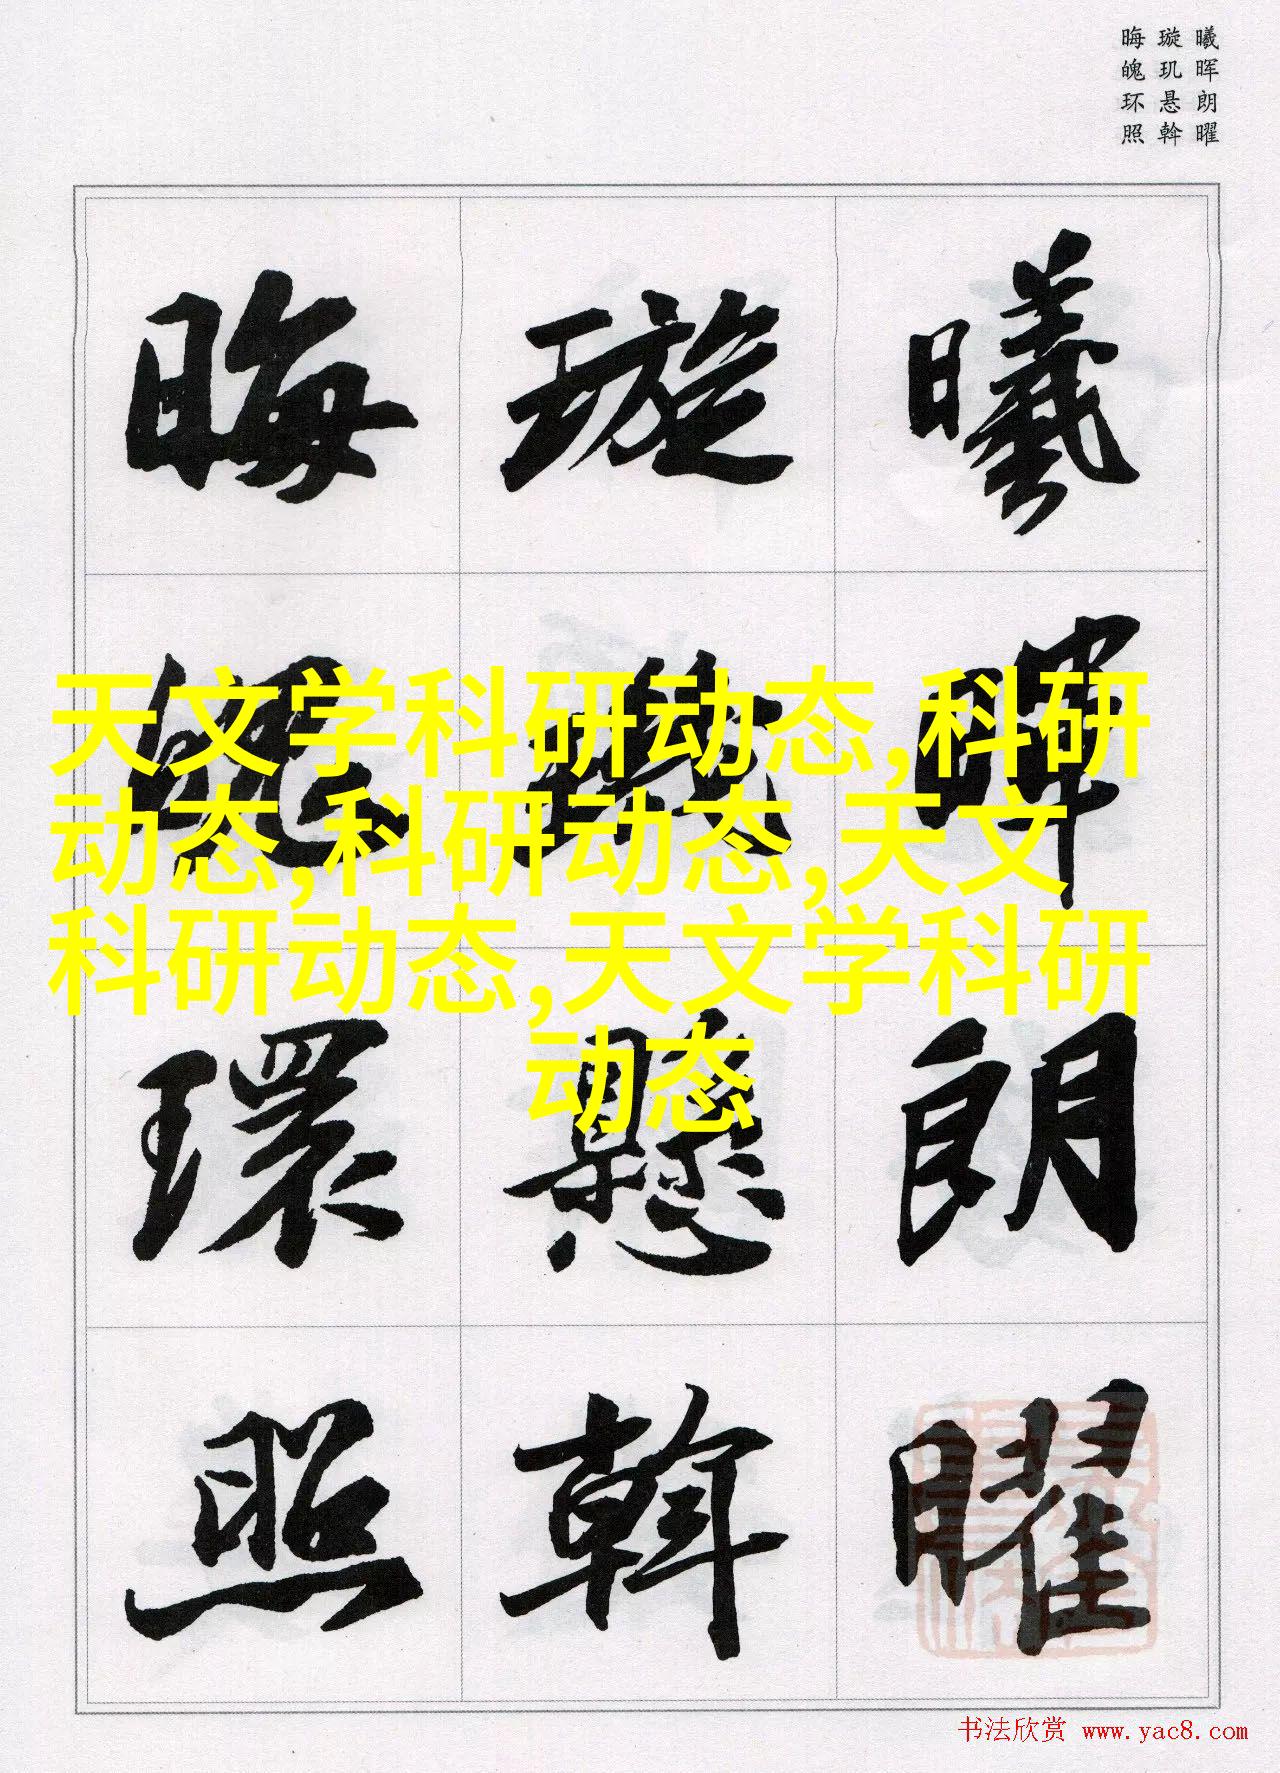 曦晖朗曜
璇玑悬斡
晦魄环照
曦暉朗曜
璇璣懸斡
晦魄環照
天文学科研动态,科研
动态,科研动态,天文
科研动态,天文学科研
动态
书法欣赏 www.yac8.com